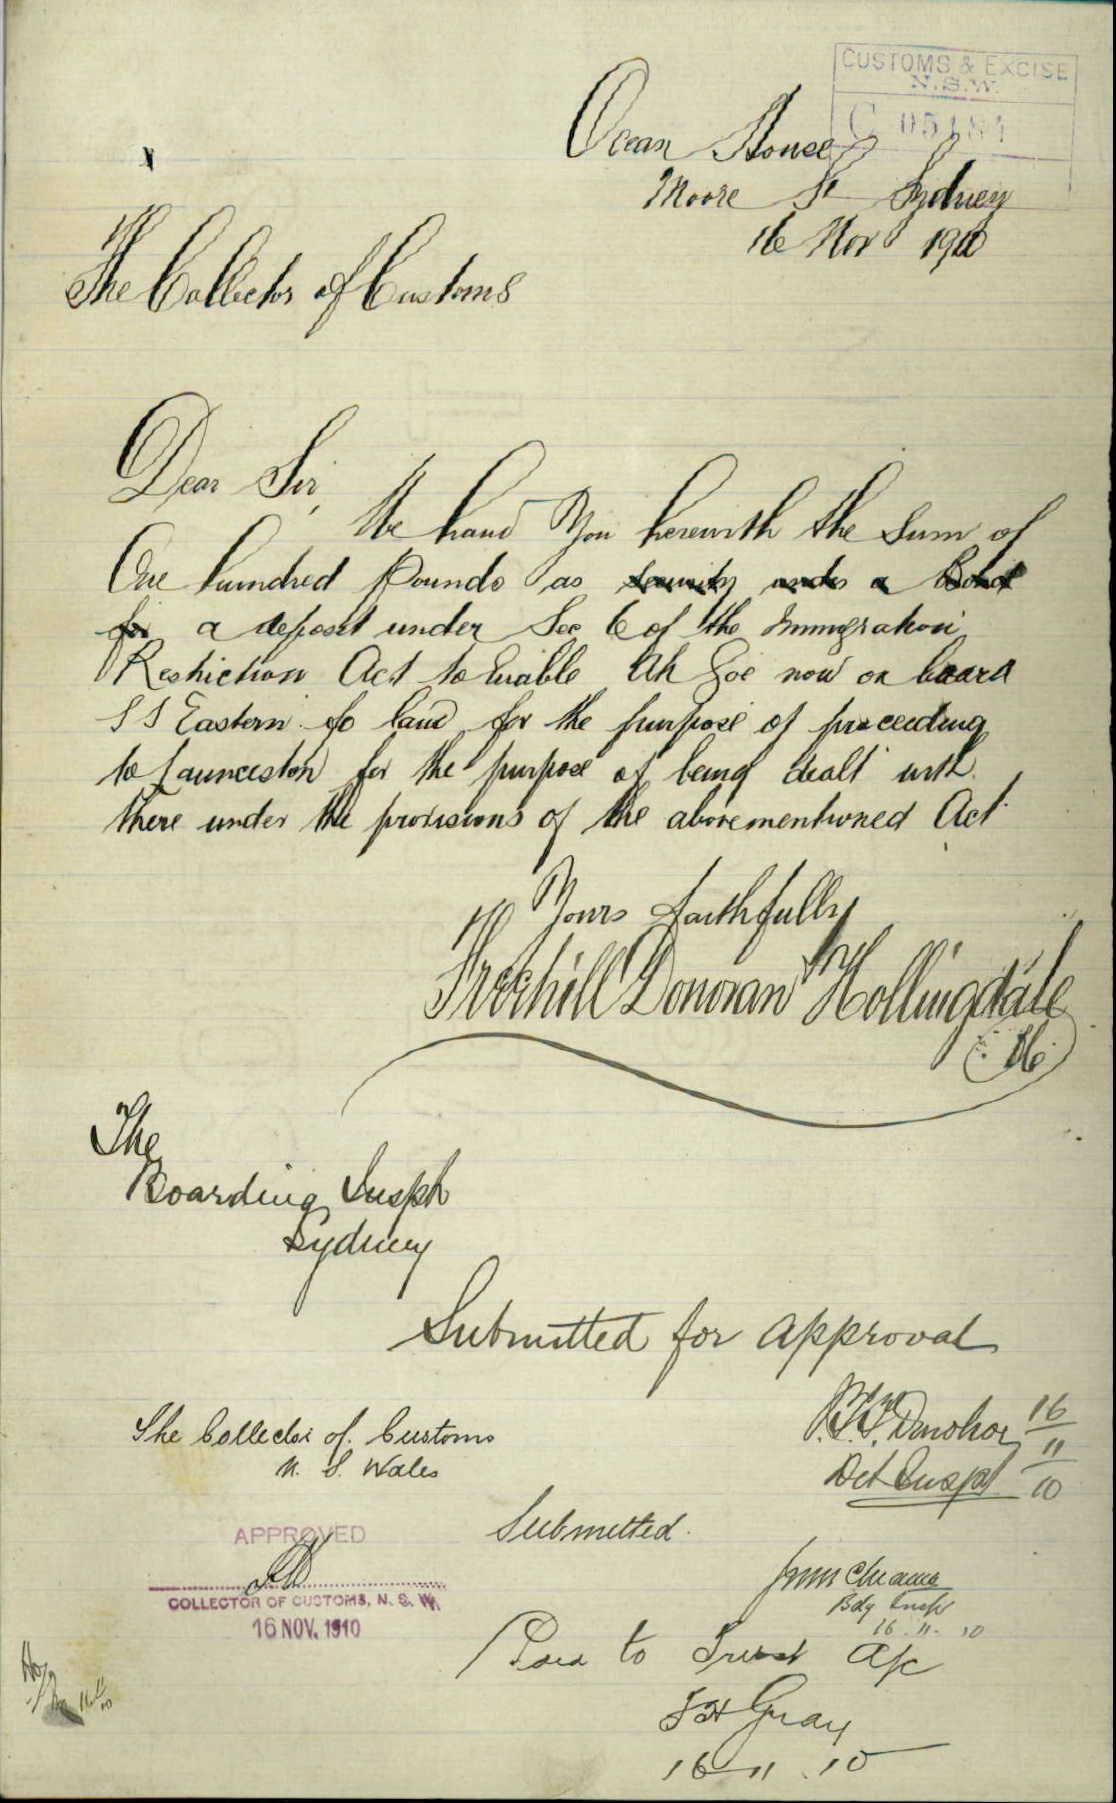 CUSTOMS & EXCISE
N.S.W.
C 05181
Ocean House
Moore St Sydney
16 Nov 1910
The Collector of Customs
Dear Sir,
We hand You herewith the Sum of
One hundred Pounds as security under a Bond
for a deposit under Sec 6 of the Immigration
Restriction Act to Enable Ah Goe now on board
S S Eastern to land for the purpose of proceeding
to Launceston for the purpose of being dealt with
there under the provisions of the abovementioned Act
Yours faithfully
Freehill Donovan Hollingdale
The
Boarding Inspr
Sydney
Submitted for approval
Donohoe 16/11/10
Det Inspr
The Collector of Customs
N. S. Wales
Submitted.
Bdg Inspr
16.11.10
APPROVED
COLLECTOR OF CUSTOMS, N. S. W.
16 NOV. 1910
Paid to Trust A/c
F H Gray
16 11 .10